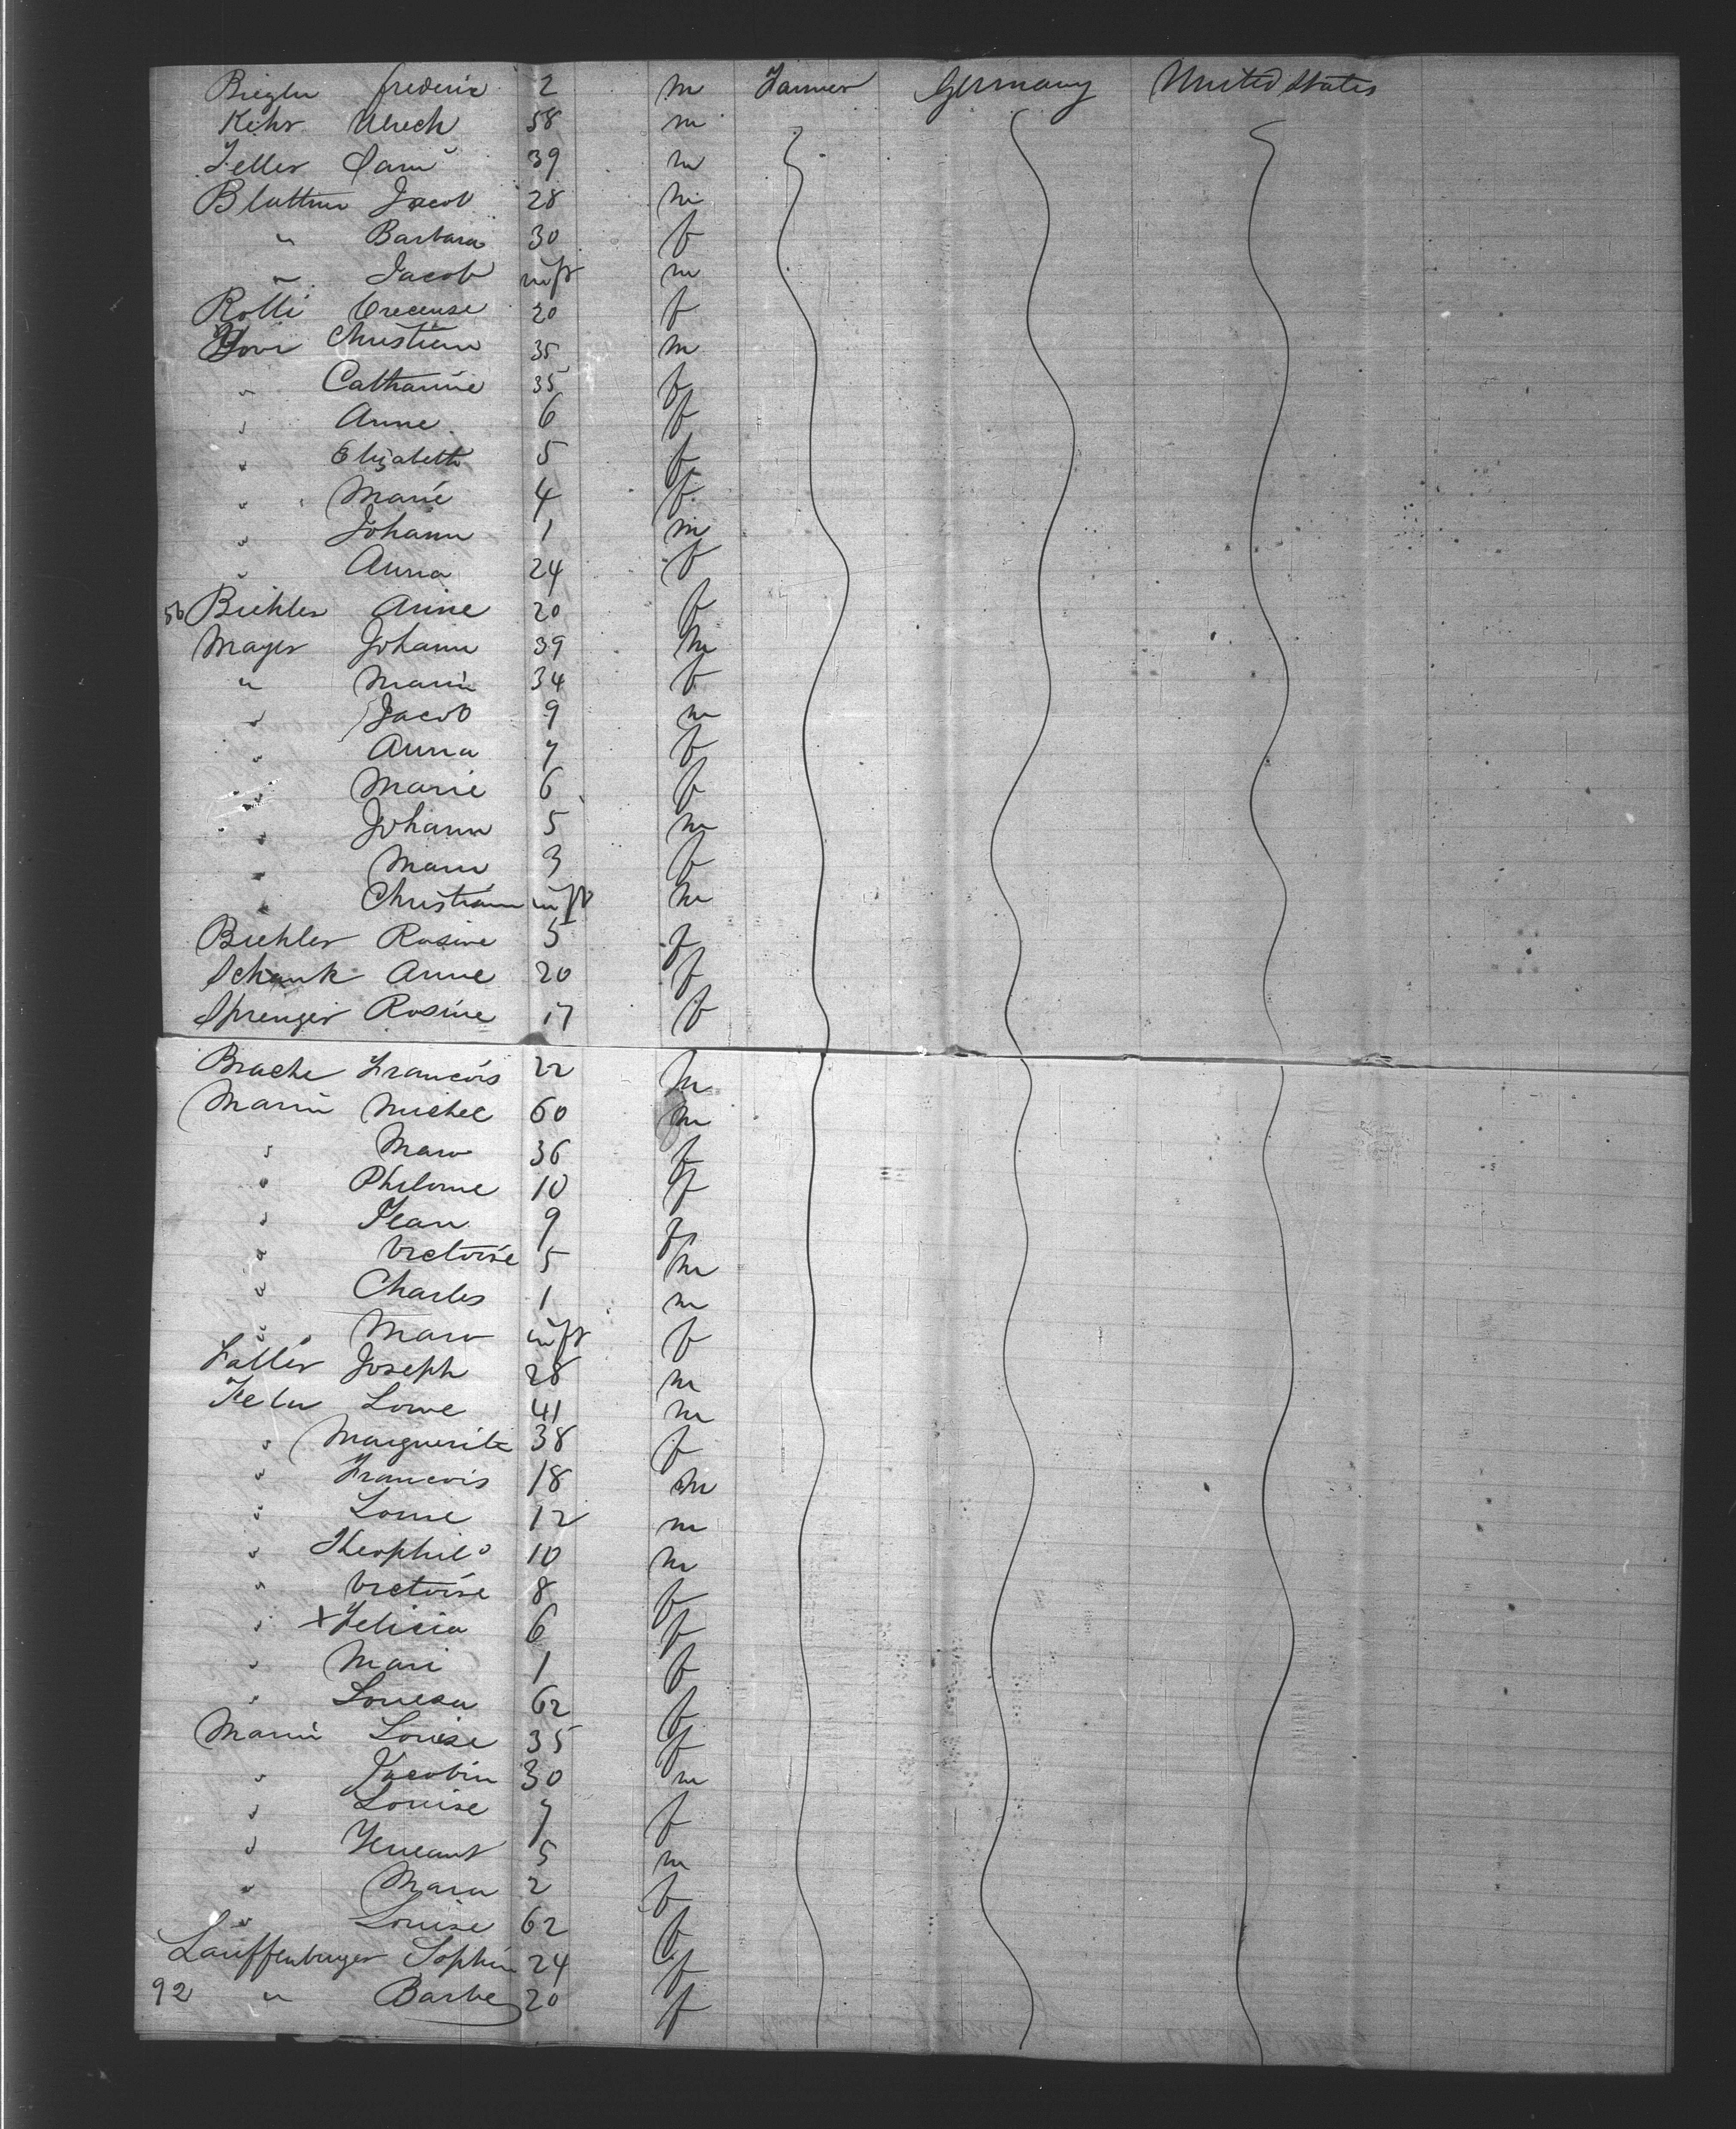 Biegler frederic 2 m Farmer Germany United States
Kehr Ulrech 58 m
Feller 39 m
Bluttner Jacob 28 m
" Barbara 30 f
" Jacob inft m
Rolli Crecense 20 f
Christian 35 m
" Catharine 35 f
" Anne 6 f
" Elizabeth 5 f
" Marie 4 f
" Johann 1 m
" Anna 24 f
56 Biehler Anne 20 f
Mayer Johann 39 m
" Marie 34 f
" Jacob 9 m
" Anna 7 f
" Marie 6 f
" Johann 5 m
" Marie 3 f
" Christiann inft m
Biehler Rosine 5 f
Schank Anne 20 f
Sprenger Rosine 17 f
Brache Francois 22 m
Marin Michel 60 m
" Marie 36 f
" Philome 10 f
" Jean 9 f
" Victoire 5 m
" Charles 1 m
" Marie inft f
Faller Joseph 28 m
41 m
" Marguerite 38 f
" Francois 18 m
" Louise 12 m
" Theophile 10 m
" Victoire 8 f
" x Felicia 6 f
" Mari 1 f
" Louisa 62 f
Marin Louise 35 f
" Jacobin 30 m
" Louise 7 f
" 5 m
" Maria 2 f
" Louise 62 f
Lauffenburger Sophie 24 f
92 " Barbe 20 f